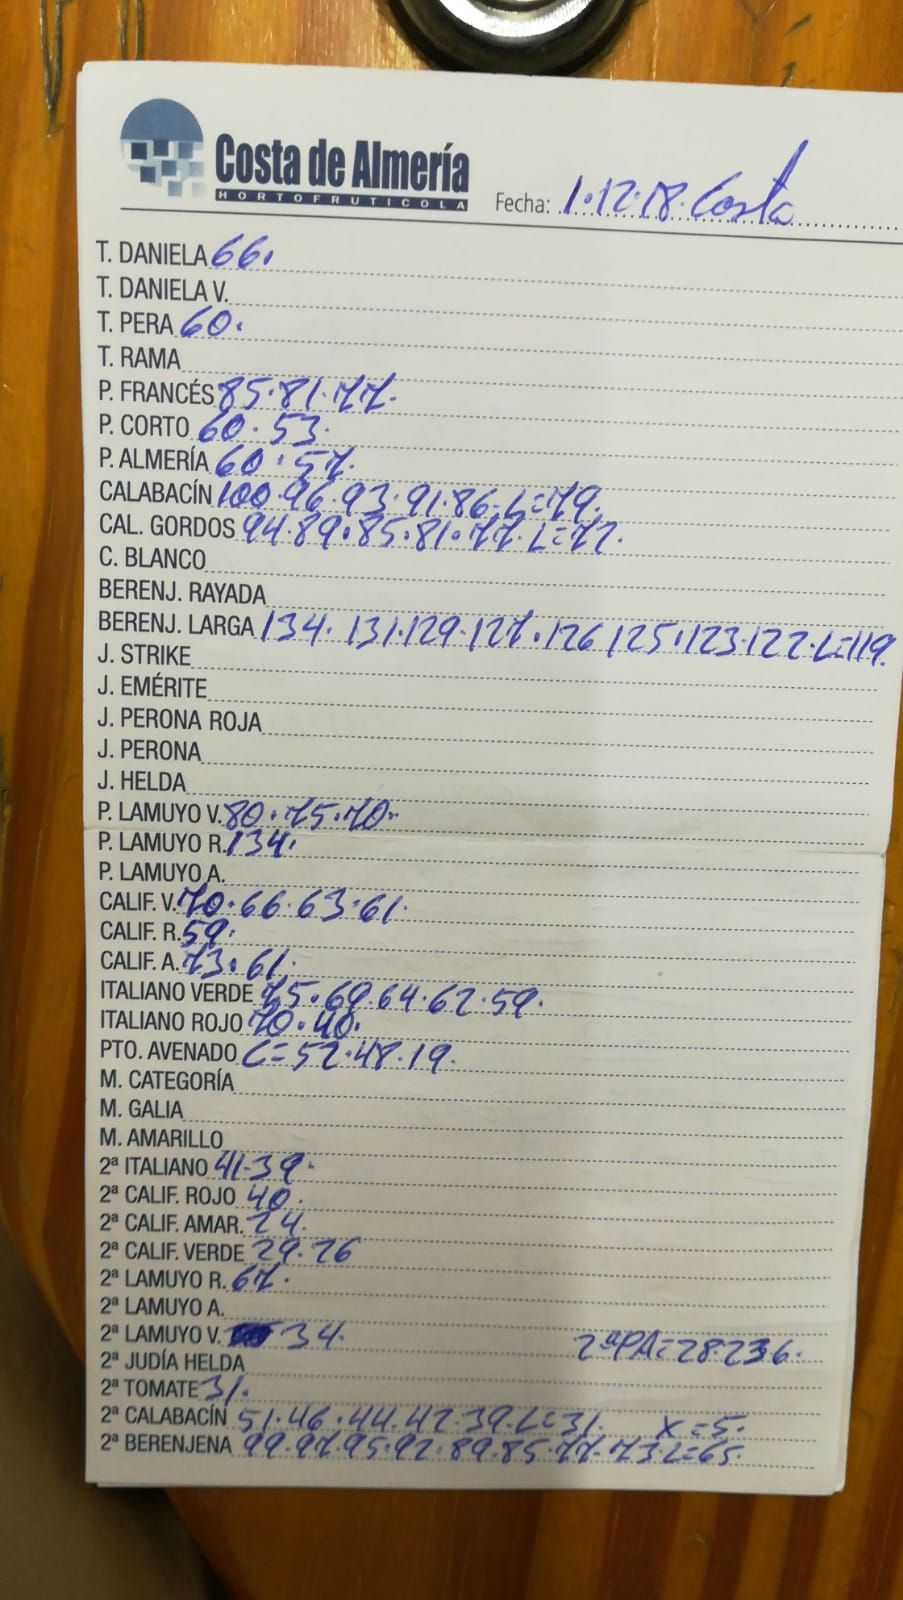 Costa de Almería
HORTOFRUTICOLA
Fecha: 1.12.18. Costa
T. DANIELA 66.
T. DANIELA V.
T. PERA 60.
T. RAMA
P. FRANCÉS 85.81.77.
P. CORTO 60.53.
P. ALMERÍA 60.57.
CALABACÍN 100.96.93.91.86.L=79.
CAL. GORDOS 94.89.85.81.77.L=72.
C. BLANCO
BERENJ. RAYADA
BERENJ. LARGA 134.131.129.127.126 125.123.122.L=119.
J. STRIKE
J. EMÉRITE
J. PERONA ROJA
J. PERONA
J. HELDA
P. LAMUYO V. 80.75.70.
P. LAMUYO R. 134.
P. LAMUYO A.
CALIF. V. 70.66.63.61.
CALIF. R. 59.
CALIF. A. 73.61.
ITALIANO VERDE 75.69.64.62.59.
ITALIANO ROJO 70.40.
PTO. AVENADO C=52.48.19.
M. CATEGORÍA
M. GALIA
M. AMARILLO
2ª ITALIANO 41.39.
2ª CALIF. ROJO 40.
2ª CALIF. AMAR. 24.
2ª CALIF. VERDE 29.26
2ª LAMUYO R. 67.
2ª LAMUYO A.
2ª LAMUYO V. 34. 2ªPA=28.23.6.
2ª JUDÍA HELDA
2ª TOMATE 31.
2ª CALABACÍN 51.46.44.42.39.L=31. X=5.
2ª BERENJENA 99.97.95.92.89.85.77.73.L=65.